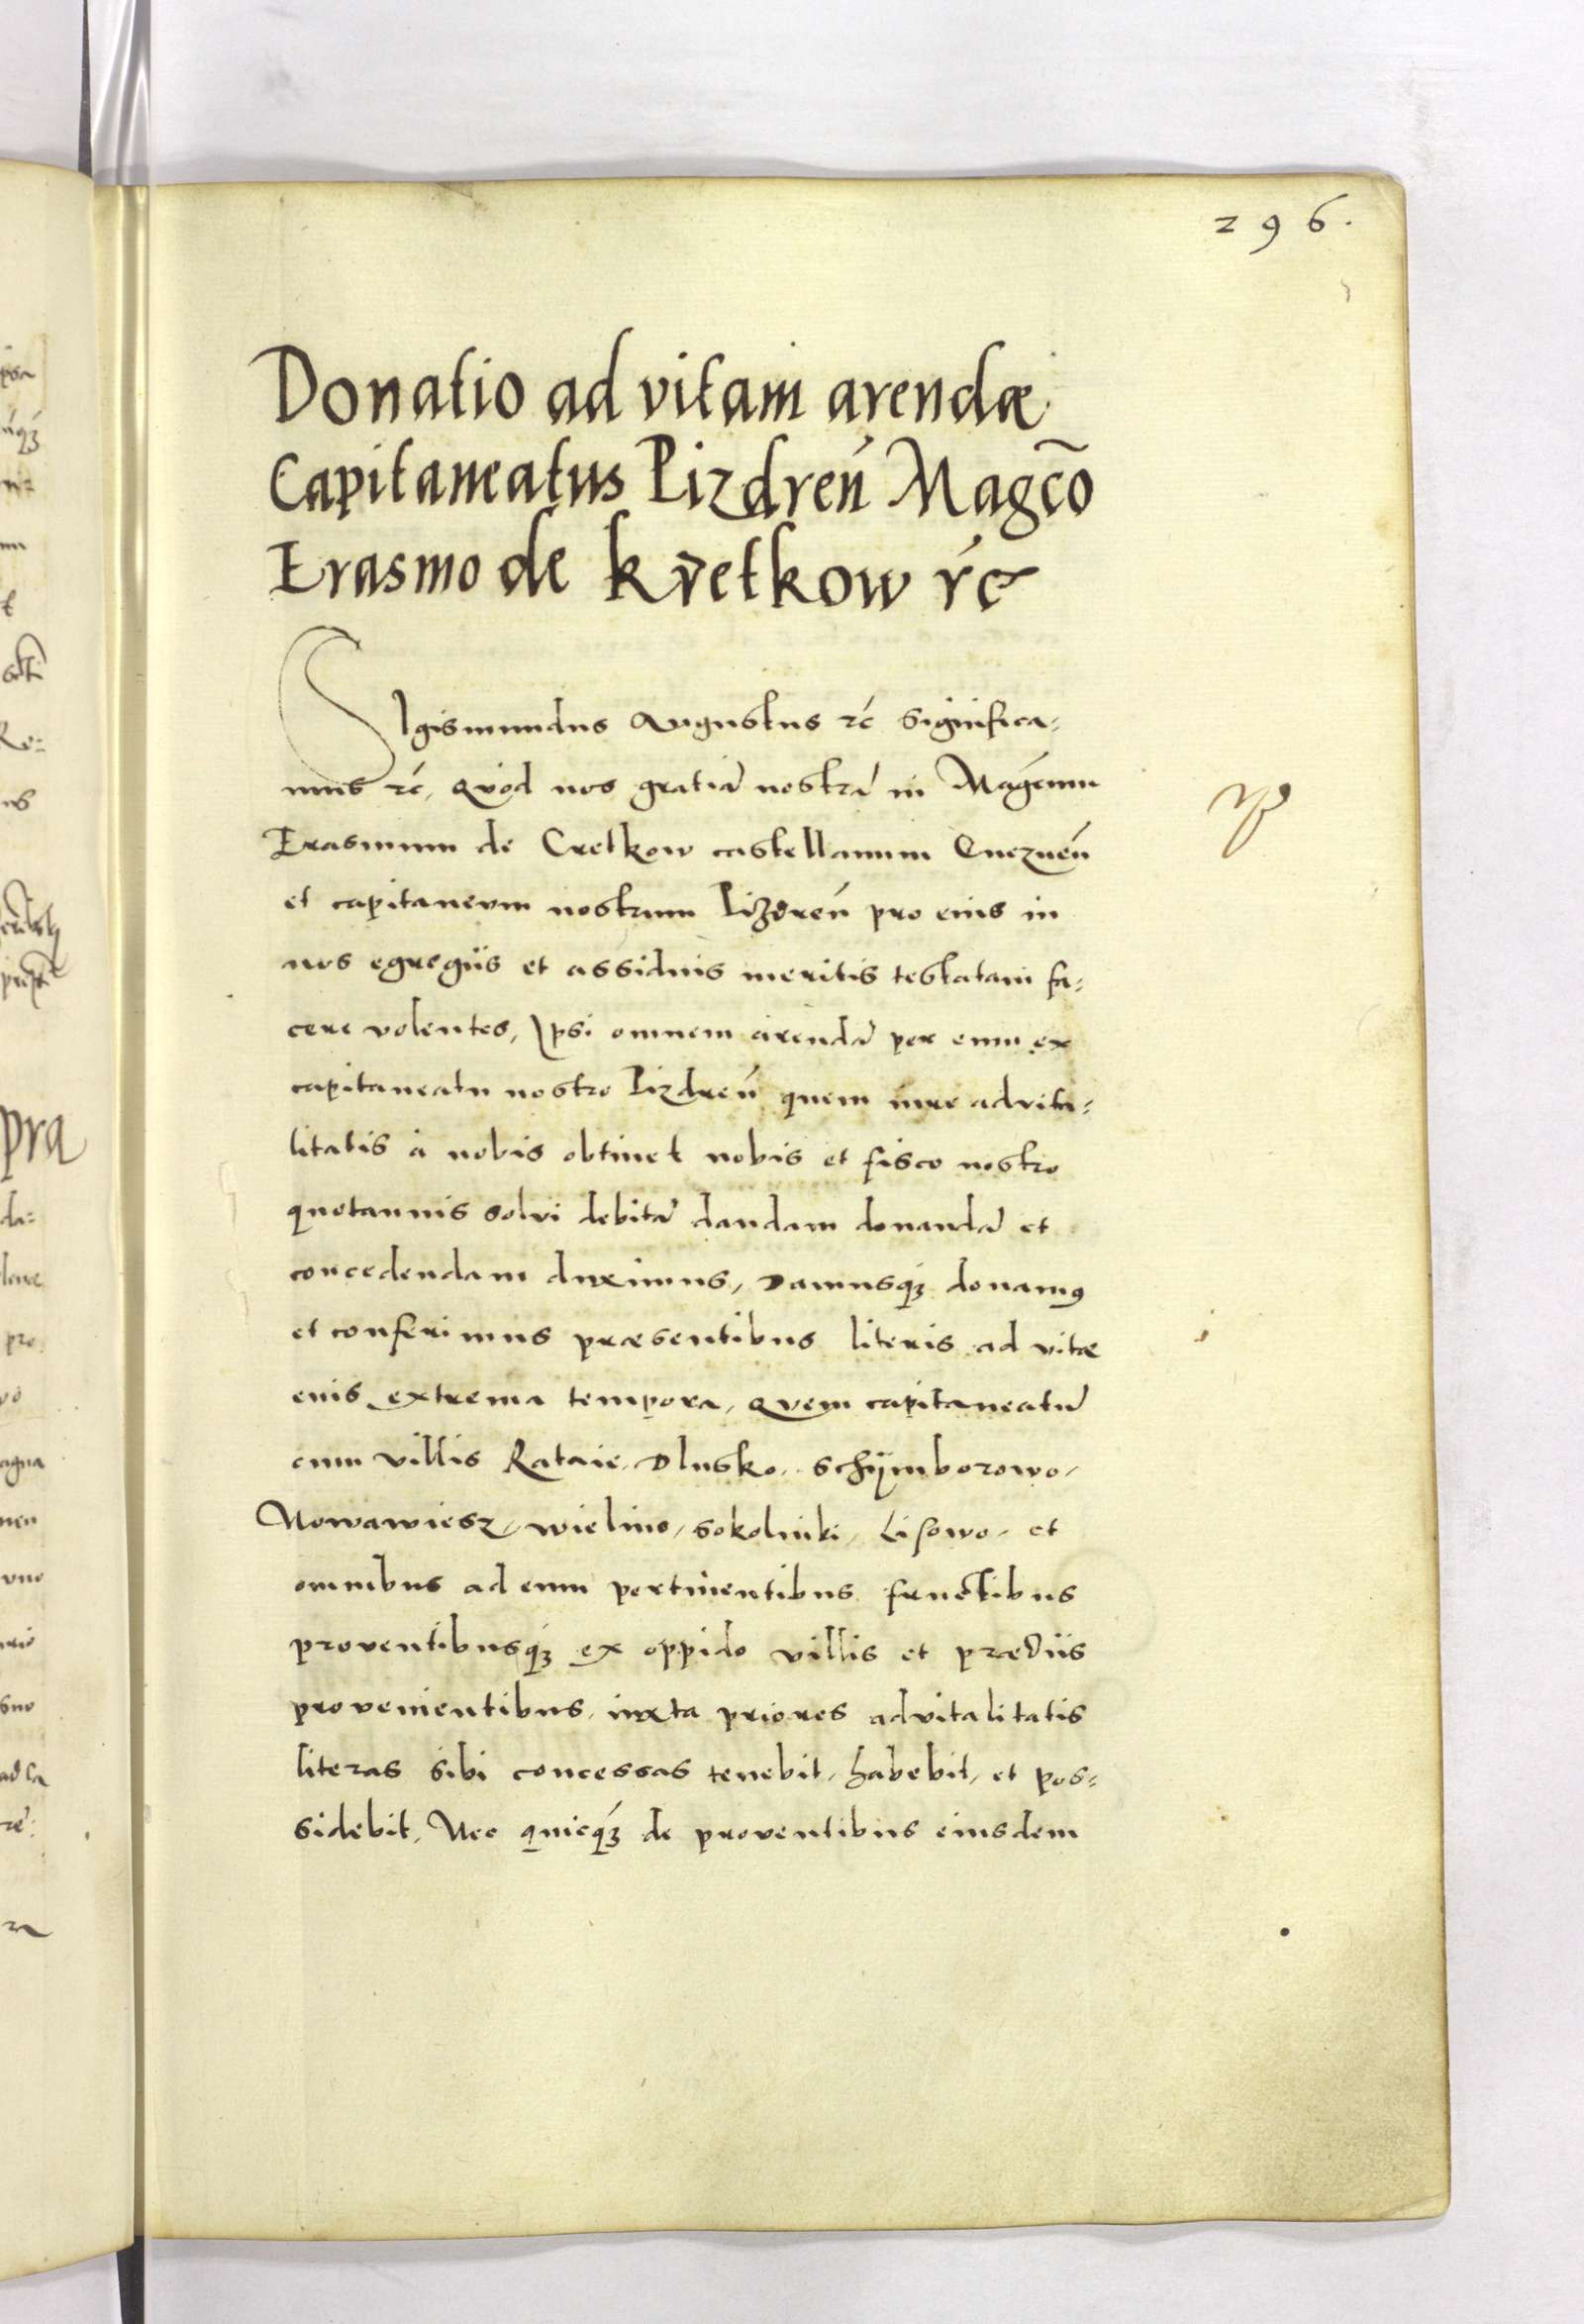 296.
Donatio ad vitam arendæ
Capitaneatus Pizdreń Magc̃o
Erasmo de Kretkow rć
Sigismundus Augustus rć significa=
mus rć, Quòd nos gratiã nostrã in Magćum
Erasmum de Cretkow castellanum Gnezneń
et capitaneum nostrum Pizdreń pro eius in
nos egregiis et assiduis meritis testatam fa=
cere volentes, Ipsi omnem arendã per eum ex
capitaneatu nostro Pizdreń quem iure advita=
litatis à nobis obtinet nobis et fisco nostro
quotannis solvi debitã dandam donandã et
concedendam duximus, Damusq́ꝫ donamꝰ
et conferimus præsentibus literis ad vitæ
eius extrema tempora, Quem capitaneatũ
cum villis Rataie, Dlusko, Schÿmborowo,
Nowawiesz, Wielino, Sokolniki, Lisowo, et
omnibus ad eum pertinentibus fructibus
proventibusq́ꝫ ex oppido villis et prædiis
provenientibus, iuxta priores advitalitatis
literas sibi concessas tenebit, habebit, et pos=
sidebit, Nec quicq́ꝫ de proventibus eiusdem